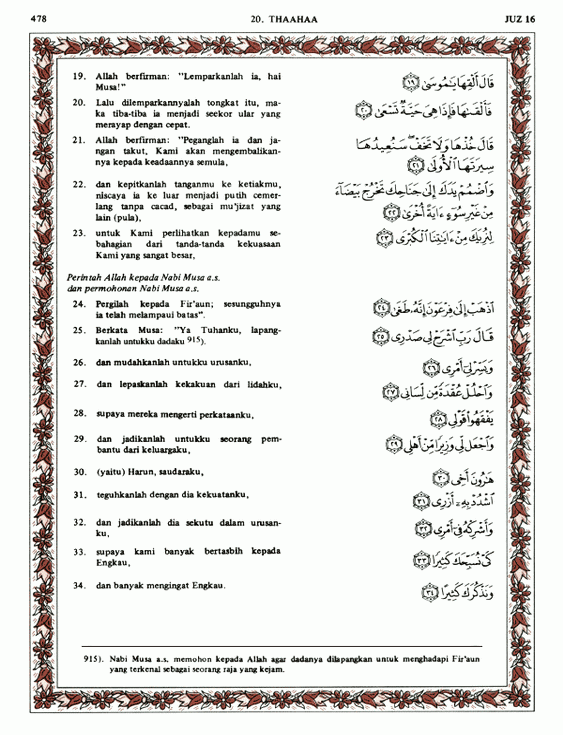 478
20. THAAHAA
JUZ 16
19. Allah berfirman: "Lemparkanlah ia, hai
Musa!"
قَالَ أَلْقِهَا يَٰمُوسَىٰ ۝١٩
20. Lalu dilemparkannyalah tongkat itu, ma-
ka tiba-tiba ia menjadi seekor ular yang
merayap dengan cepat.
فَأَلْقَىٰهَا فَإِذَا هِىَ حَيَّةٌ تَسْعَىٰ ۝٢٠
21. Allah berfirman: "Peganglah ia dan ja-
ngan takut, Kami akan mengembalikan-
nya kepada keadaannya semula,
قَالَ خُذْهَا وَلَا تَخَفْ سَنُعِيدُهَا
سِيرَتَهَا ٱلْأُولَىٰ ۝٢١
22. dan kepitkanlah tanganmu ke ketiakmu,
niscaya ia ke luar menjadi putih cemer-
lang tanpa cacad, sebagai mu'jizat yang
lain (pula),
وَٱضْمُمْ يَدَكَ إِلَىٰ جَنَاحِكَ تَخْرُجْ بَيْضَآءَ
مِنْ غَيْرِ سُوٓءٍ ءَايَةً أُخْرَىٰ ۝٢٢
23. untuk Kami perlihatkan kepadamu se-
bahagian dari tanda-tanda kekuasaan
Kami yang sangat besar,
لِنُرِيَكَ مِنْ ءَايَٰتِنَا ٱلْكُبْرَىٰ ۝٢٣
Perintah Allah kepada Nabi Musa a.s.
dan permohonan Nabi Musa a.s.
24. Pergilah kepada Fir'aun; sesungguhnya
ia telah melampaui batas".
ٱذْهَبْ إِلَىٰ فِرْعَوْنَ إِنَّهُۥ طَغَىٰ ۝٢٤
25. Berkata Musa: "Ya Tuhanku, lapang-
kanlah untukku dadaku 915).
قَالَ رَبِّ ٱشْرَحْ لِى صَدْرِى ۝٢٥
26. dan mudahkanlah untukku urusanku,
وَيَسِّرْ لِىٓ أَمْرِى ۝٢٦
27. dan lepaskanlah kekakuan dari lidahku,
وَٱحْلُلْ عُقْدَةً مِّن لِّسَانِى ۝٢٧
28. supaya mereka mengerti perkataanku,
يَفْقَهُوا۟ قَوْلِى ۝٢٨
29. dan jadikanlah untukku seorang pem-
bantu dari keluargaku,
وَٱجْعَل لِّى وَزِيرًا مِّنْ أَهْلِى ۝٢٩
30. (yaitu) Harun, saudaraku,
هَٰرُونَ أَخِى ۝٣٠
31. teguhkanlah dengan dia kekuatanku,
ٱشْدُدْ بِهِۦٓ أَزْرِى ۝٣١
32. dan jadikanlah dia sekutu dalam urusan-
ku,
وَأَشْرِكْهُ فِىٓ أَمْرِى ۝٣٢
33. supaya kami banyak bertasbih kepada
Engkau,
كَىْ نُسَبِّحَكَ كَثِيرًا ۝٣٣
34. dan banyak mengingat Engkau.
وَنَذْكُرَكَ كَثِيرًا ۝٣٤
915). Nabi Musa a.s. memohon kepada Allah agar dadanya dilapangkan untuk menghadapi Fir'aun
yang terkenal sebagai seorang raja yang kejam.